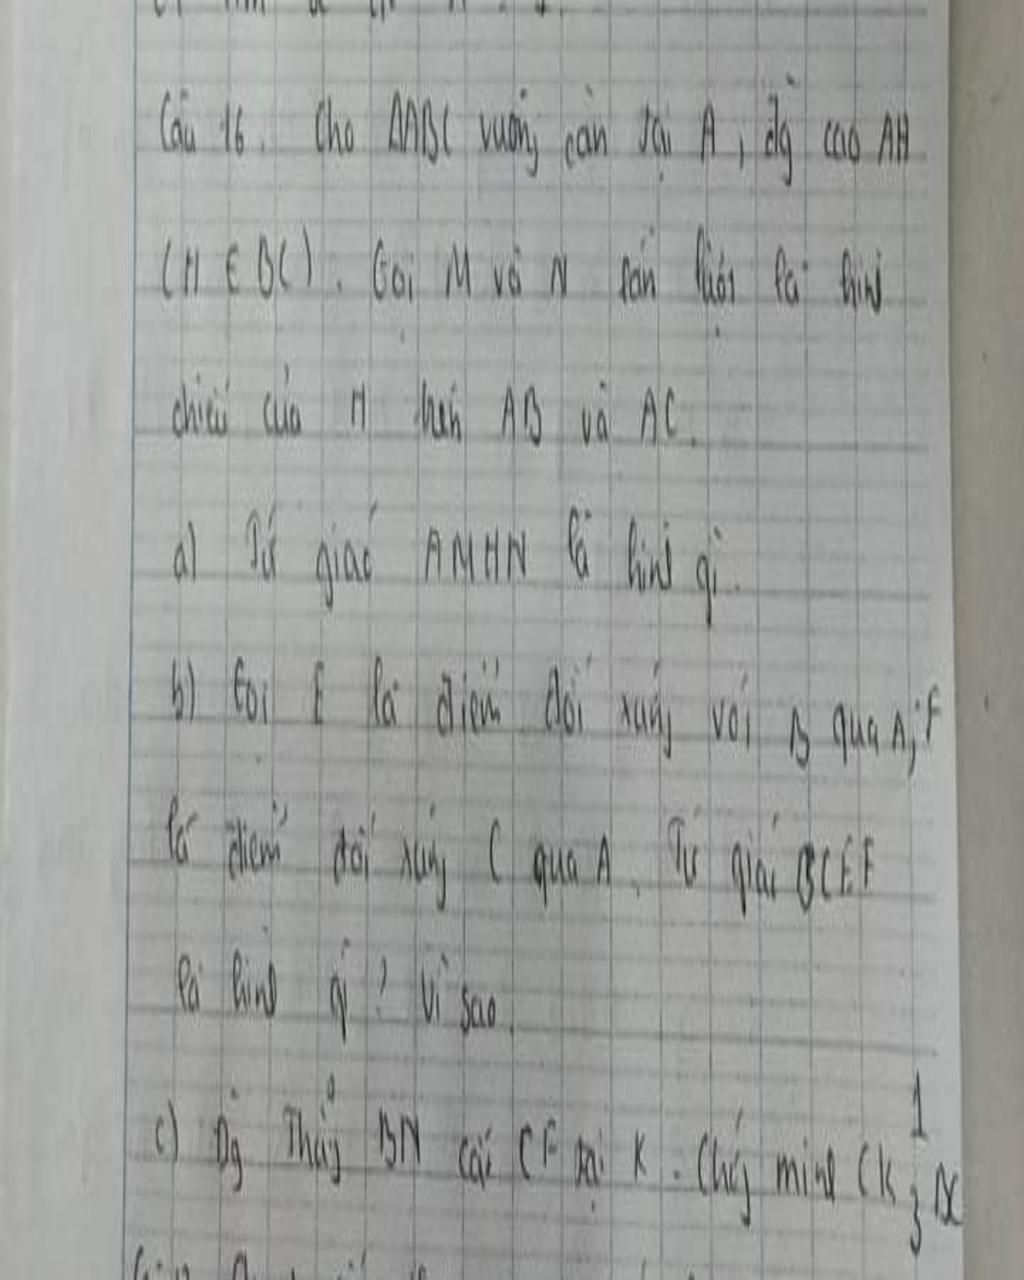 Câu 16. Cho ΔABC vuông cân tại A, đg cao AH
(H ∈ BC). Gọi M và N lần lượt là hình
chiếu của H trên AB và AC.
a) Tứ giác AMHN là hình gì.
b) Gọi E là điểm đối xứng với B qua A; F
là điểm đối xứng C qua A. Tứ giác BCEF
là hình gì? Vì sao.
c) Đg Thẳng BN cắt CF tại K. Chứng minh CK 1/3